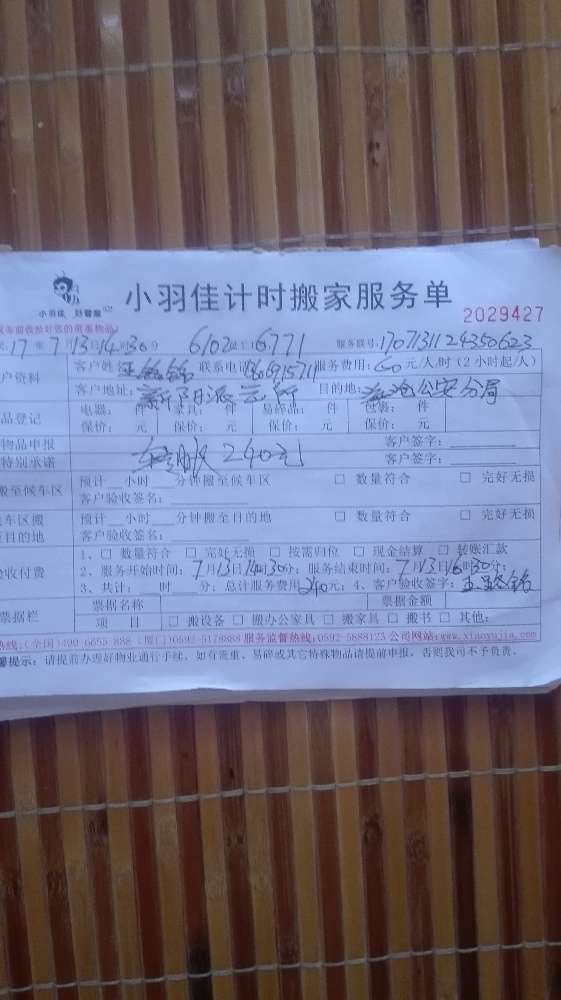 小羽佳 好管家
小羽佳计时搬家服务单
2029427
17年7月13日14时30分 6102 6771 服务联号:1707131124350623
户资料 客户姓名: 联系电话 服务费用:60元/人/时(2小时起/人)
客户地址: 目的地: 公安分局
品登记 电器: 件 家具: 件 易碎品: 件 包裹: 件
保价: 元 保价: 元 保价: 元 保价: 元
物品申报 客户签字:
特别承诺 240元 客户签字:
搬至候车区 预计 小时 分钟搬至候车区 □ 数量符合 □ 完好无损
客户验收签名:
车区搬 预计 小时 分钟搬至目的地 □ 数量符合 □ 完好无损
目的地 客户验收签名:
1、□ 数量符合 □ 完好无损 □ 按需归位 □ 现金结算 □ 转账汇款
验收付费 2、服务开始时间:7月13日14时30分;服务结束时间:7月13日16时30分;
3、共计: 时 分;总计服务费用240元;4、客户验收签字:
票据栏 票据名称 票据金额
项 目 □ 搬设备 □ 搬办公家具 □ 搬家具 □ 搬书 □ 其他:
热线:(全国)400-6655-888 (厦门)0592-5178888 服务监督热线:0592-5888123 公司网站:www.xiaoyujia.com
提示:请提前办理好物业通行手续,如有贵重、易碎或其它特殊物品请提前申报,否则我司不予负责。